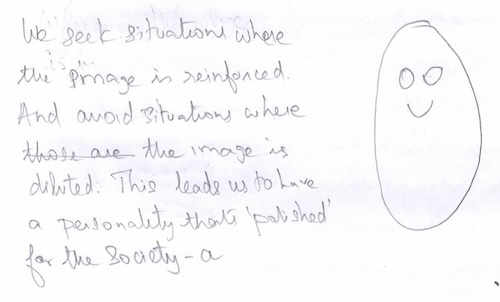 We seek situations where
the image is reinforced.
And avoid situations where
those are the image is
diluted. This leads us to have
a personality thats 'polished'
for the Society - a